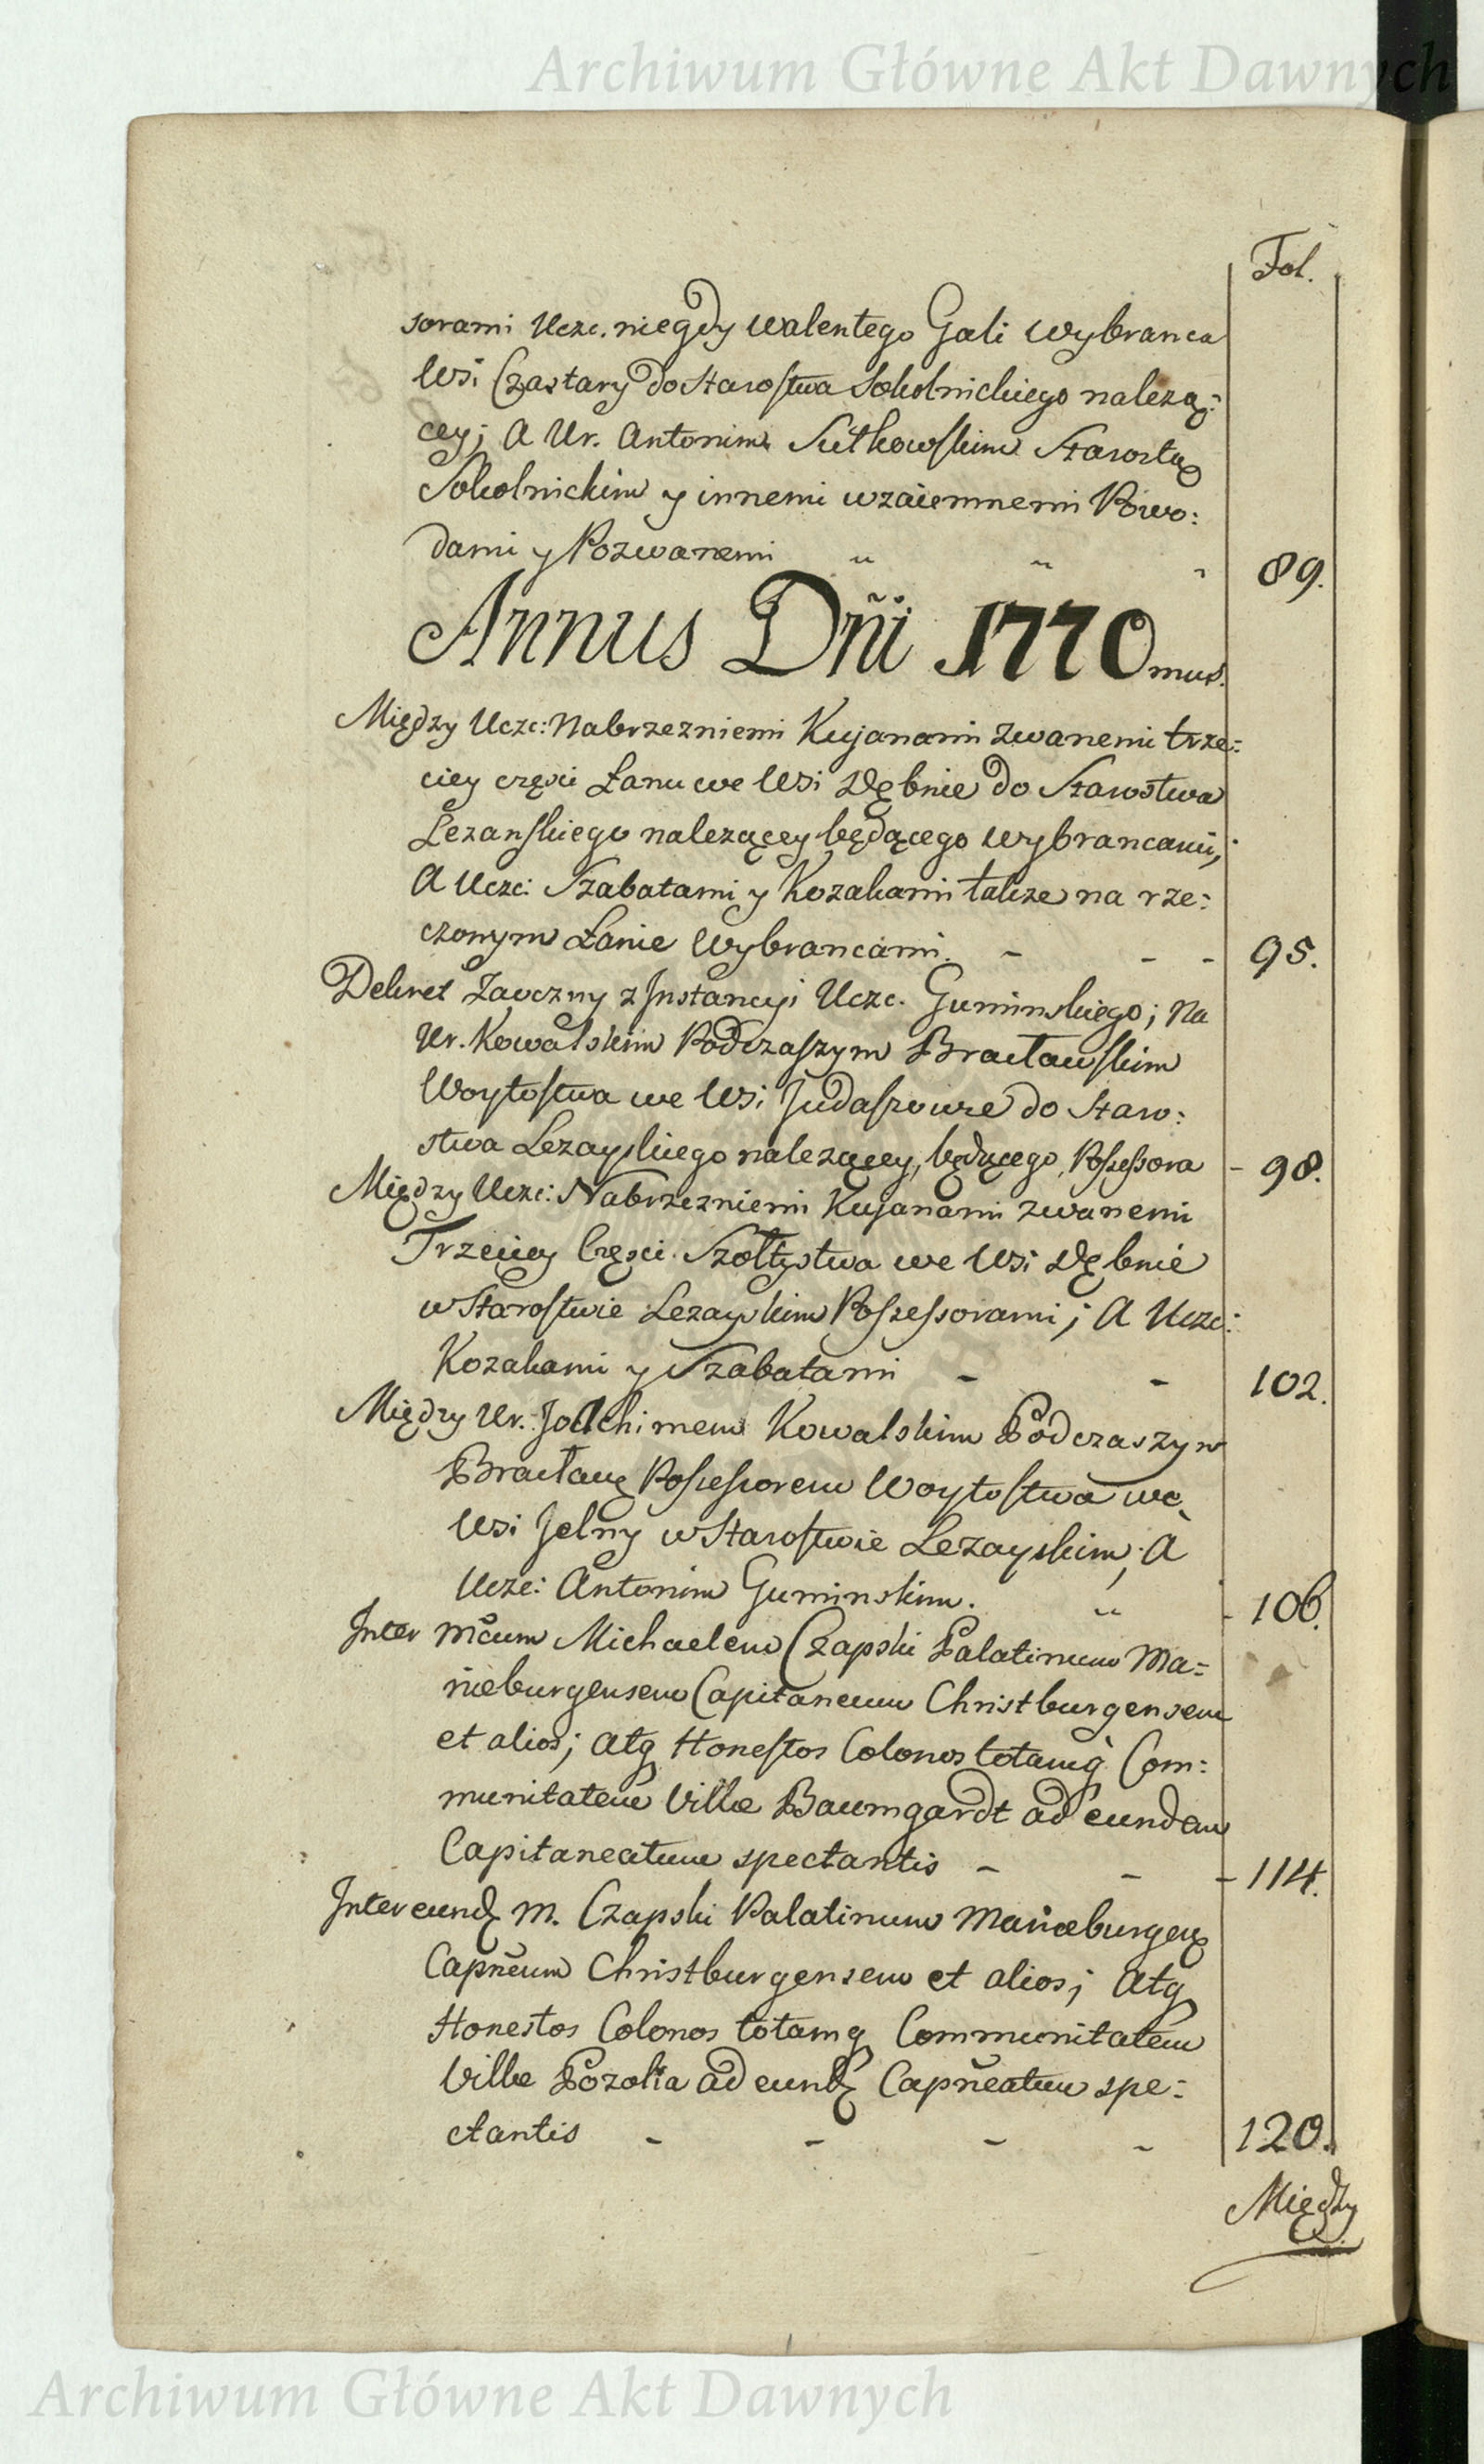 Archiwum Główne Akt Dawnych
Fol.
sorami Uczc. niegdy walentego Gali Wybranca
Wsi Czastary do Starostwa Sokolnickiego nalezą:
cey; A Ur. Antonim Sułkowskim Starostą
Sokolnickim y innemi wzaiemnemi Powo:
dami y Pozwanemi 89.
Annus Dni 1770mus.
Między Uczc: Nabrzezniemi Kujanami zwanemi trze:
ciey części Łanu we Wsi Dębnie do Starostwa
Lezanskiego nalezącey będącego wybrancami,
A Uczc: Szabatami y Kozakami takze na rze:
czonym Łanie Wybrancami. - - - 95.
Dekret Zaoczny z Instancyi Ucze. Guminskiego; Na
Ur. Kowalskim Podczaszym Bracławskim
Woytostwa we Wsi Judaszowce do Staro:
stwa Lezayskiego nalezącey, będącego Possessora - 98.
Między Uczc: Nabrzezniemi Kujanami zwanemi
Trzeciey Części Szołtystwa we Wsi Dębnie
w Starostwie Lezayskim Possessorami; A Uczc:
Kozakami y Szabatami - - 102.
Między Ur. Joachimem Kowalskim Podczaszym
Bracław Possessorem Woytostwa we
Wsi Jelny w Starostwie Lezayskim; A
Uczc: Antonim Guminskim. - 106.
Inter Mcum Michaelem Czapski Palatinum Ma:
rieburgensem Capitaneum Christburgensem
et alios; atq Honestos Colonos totamq Com:
munitatem Villæ Baumgardt ad eundem
Capitaneatum spectantis - - - 114.
Inter eund M. Czapski Palatinum Mariæburgen
Capneum Christburgensem et alios; atq
Honestos Colonos totamq Communitatem
Villæ Pozolia ad eund Capneatum spe:
ctantis - - - - 120.
Między
Archiwum Główne Akt Dawnych